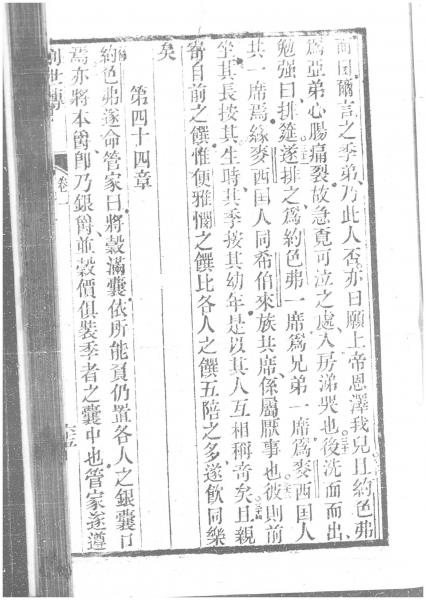 前因爾言之季弟乃此人否亦曰願上帝恩澤我兒且約色弗
爲亞弟心腸痛裂故急覓可泣之處入房涕哭也後洗面而出
勉强曰排筵遂排之爲約色弗一席爲兄弟一席爲麥西囯人
共一席焉緣麥西囯人同希伯來族共席係屬厭事也彼則前
坐其長按其生時其季按其幼年是以其人互相稱奇矣且親
寄自前之饌惟便雅憫之饌比各人之饌五陪之多遂飲同樂
矣
第四十四章
約色弗遂命管家曰將穀滿囊依所能負仍置各人之銀囊口
焉亦將本爵卽乃銀爵並穀價俱裝季者之囊中也管家遂遵
創世傳
卷一